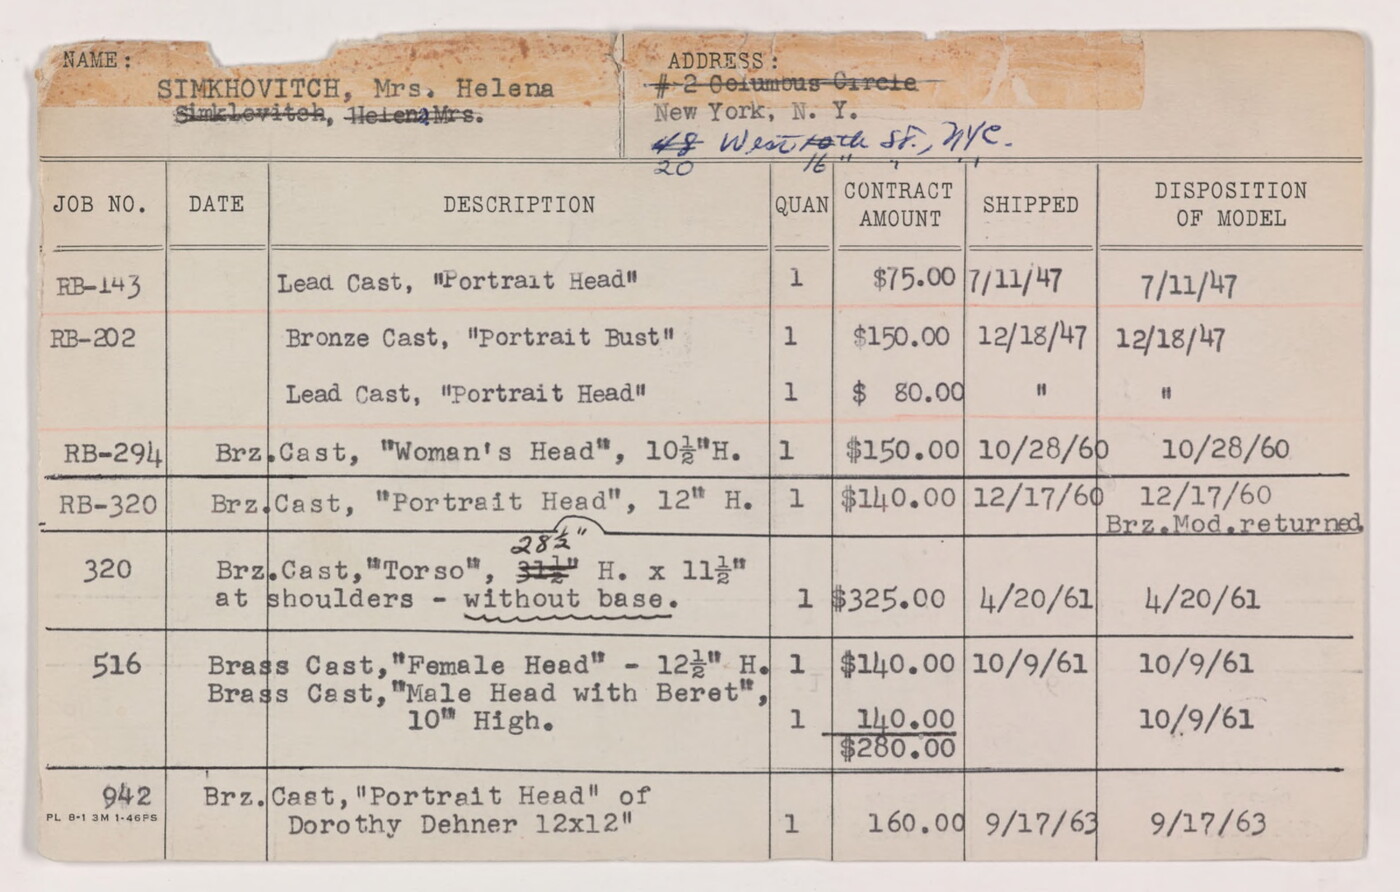 NAME:
SIMKHOVITCH, Mrs. Helena
Simklovitch, Helena Mrs.
ADDRESS:
# 2 Columbus Circle
New York, N. Y.
48 West 10th St., NYC.
20 16 " " "
JOB NO. DATE DESCRIPTION QUAN CONTRACT AMOUNT SHIPPED DISPOSITION OF MODEL
RB-143 Lead Cast, "Portrait Head" 1 $75.00 7/11/47 7/11/47
RB-202 Bronze Cast, "Portrait Bust" 1 $150.00 12/18/47 12/18/47
Lead Cast, "Portrait Head" 1 $ 80.00 " "
RB-294 Brz.Cast, "Woman's Head", 10½"H. 1 $150.00 10/28/60 10/28/60
RB-320 Brz.Cast, "Portrait Head", 12" H. 1 $140.00 12/17/60 12/17/60
Brz.Mod.returned.
28½"
320 Brz.Cast,"Torso", 31½" H. x 11½"
at shoulders - without base. 1 $325.00 4/20/61 4/20/61
516 Brass Cast,"Female Head" - 12½" H. 1 $140.00 10/9/61 10/9/61
Brass Cast,"Male Head with Beret",
10" High. 1 140.00 10/9/61
$280.00
942 Brz.Cast,"Portrait Head" of
PL 8-1 3M 1-46PS
Dorothy Dehner 12x12" 1 160.00 9/17/63 9/17/63